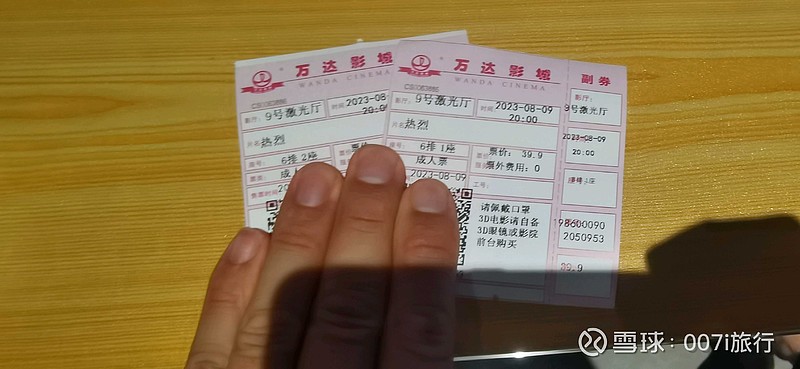 万达影城
WANDA CINEMA
影厅: 9号激光厅
时间 2023-08-
20:00
片名 热烈
座号: 6排 2座
票价
票类: 成人
售票时间 20
万达影城
WANDA CINEMA
影厅: 9号激光厅
时间 2023-08-09
20:00
片名 热烈
座号: 6排 1座
票价: 39.9
成人票
票外费用: 0
2023-08-09
工号:
请佩戴口罩
3D电影请自备
3D眼镜或影院
前台购买
副券
影厅:
9号激光厅
2023-08-09
20:00
198600090
2050953
39.9
雪球: 007i旅行